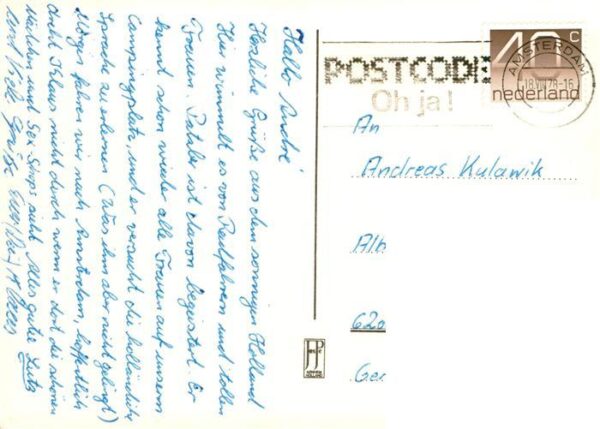 Hallo André
Herzliche Grüße aus dem sonnigen Holland
Hier wimmelt es von Radfahrern und tollen
Frauen. ist davon begeistert. Er
kennt schon wieder alle Frauen auf unserm
Campingplatz, und er versucht die holländische
Sprache zu erlernen (Was ihm aber nicht gelingt)
Morgen fahren wir nach Amsterdam, hoffentlich
dreht Klaus nicht durch wenn er dort die schönen
Mädchen und Sex-Shops sieht. Alles gute Lutz
und viele Grüße Euer
POSTCODE
Oh ja!
40 c
nederland
AMSTERDAM
18 VII 78-16
An
Andreas Kulawik
Alb
620
Ger